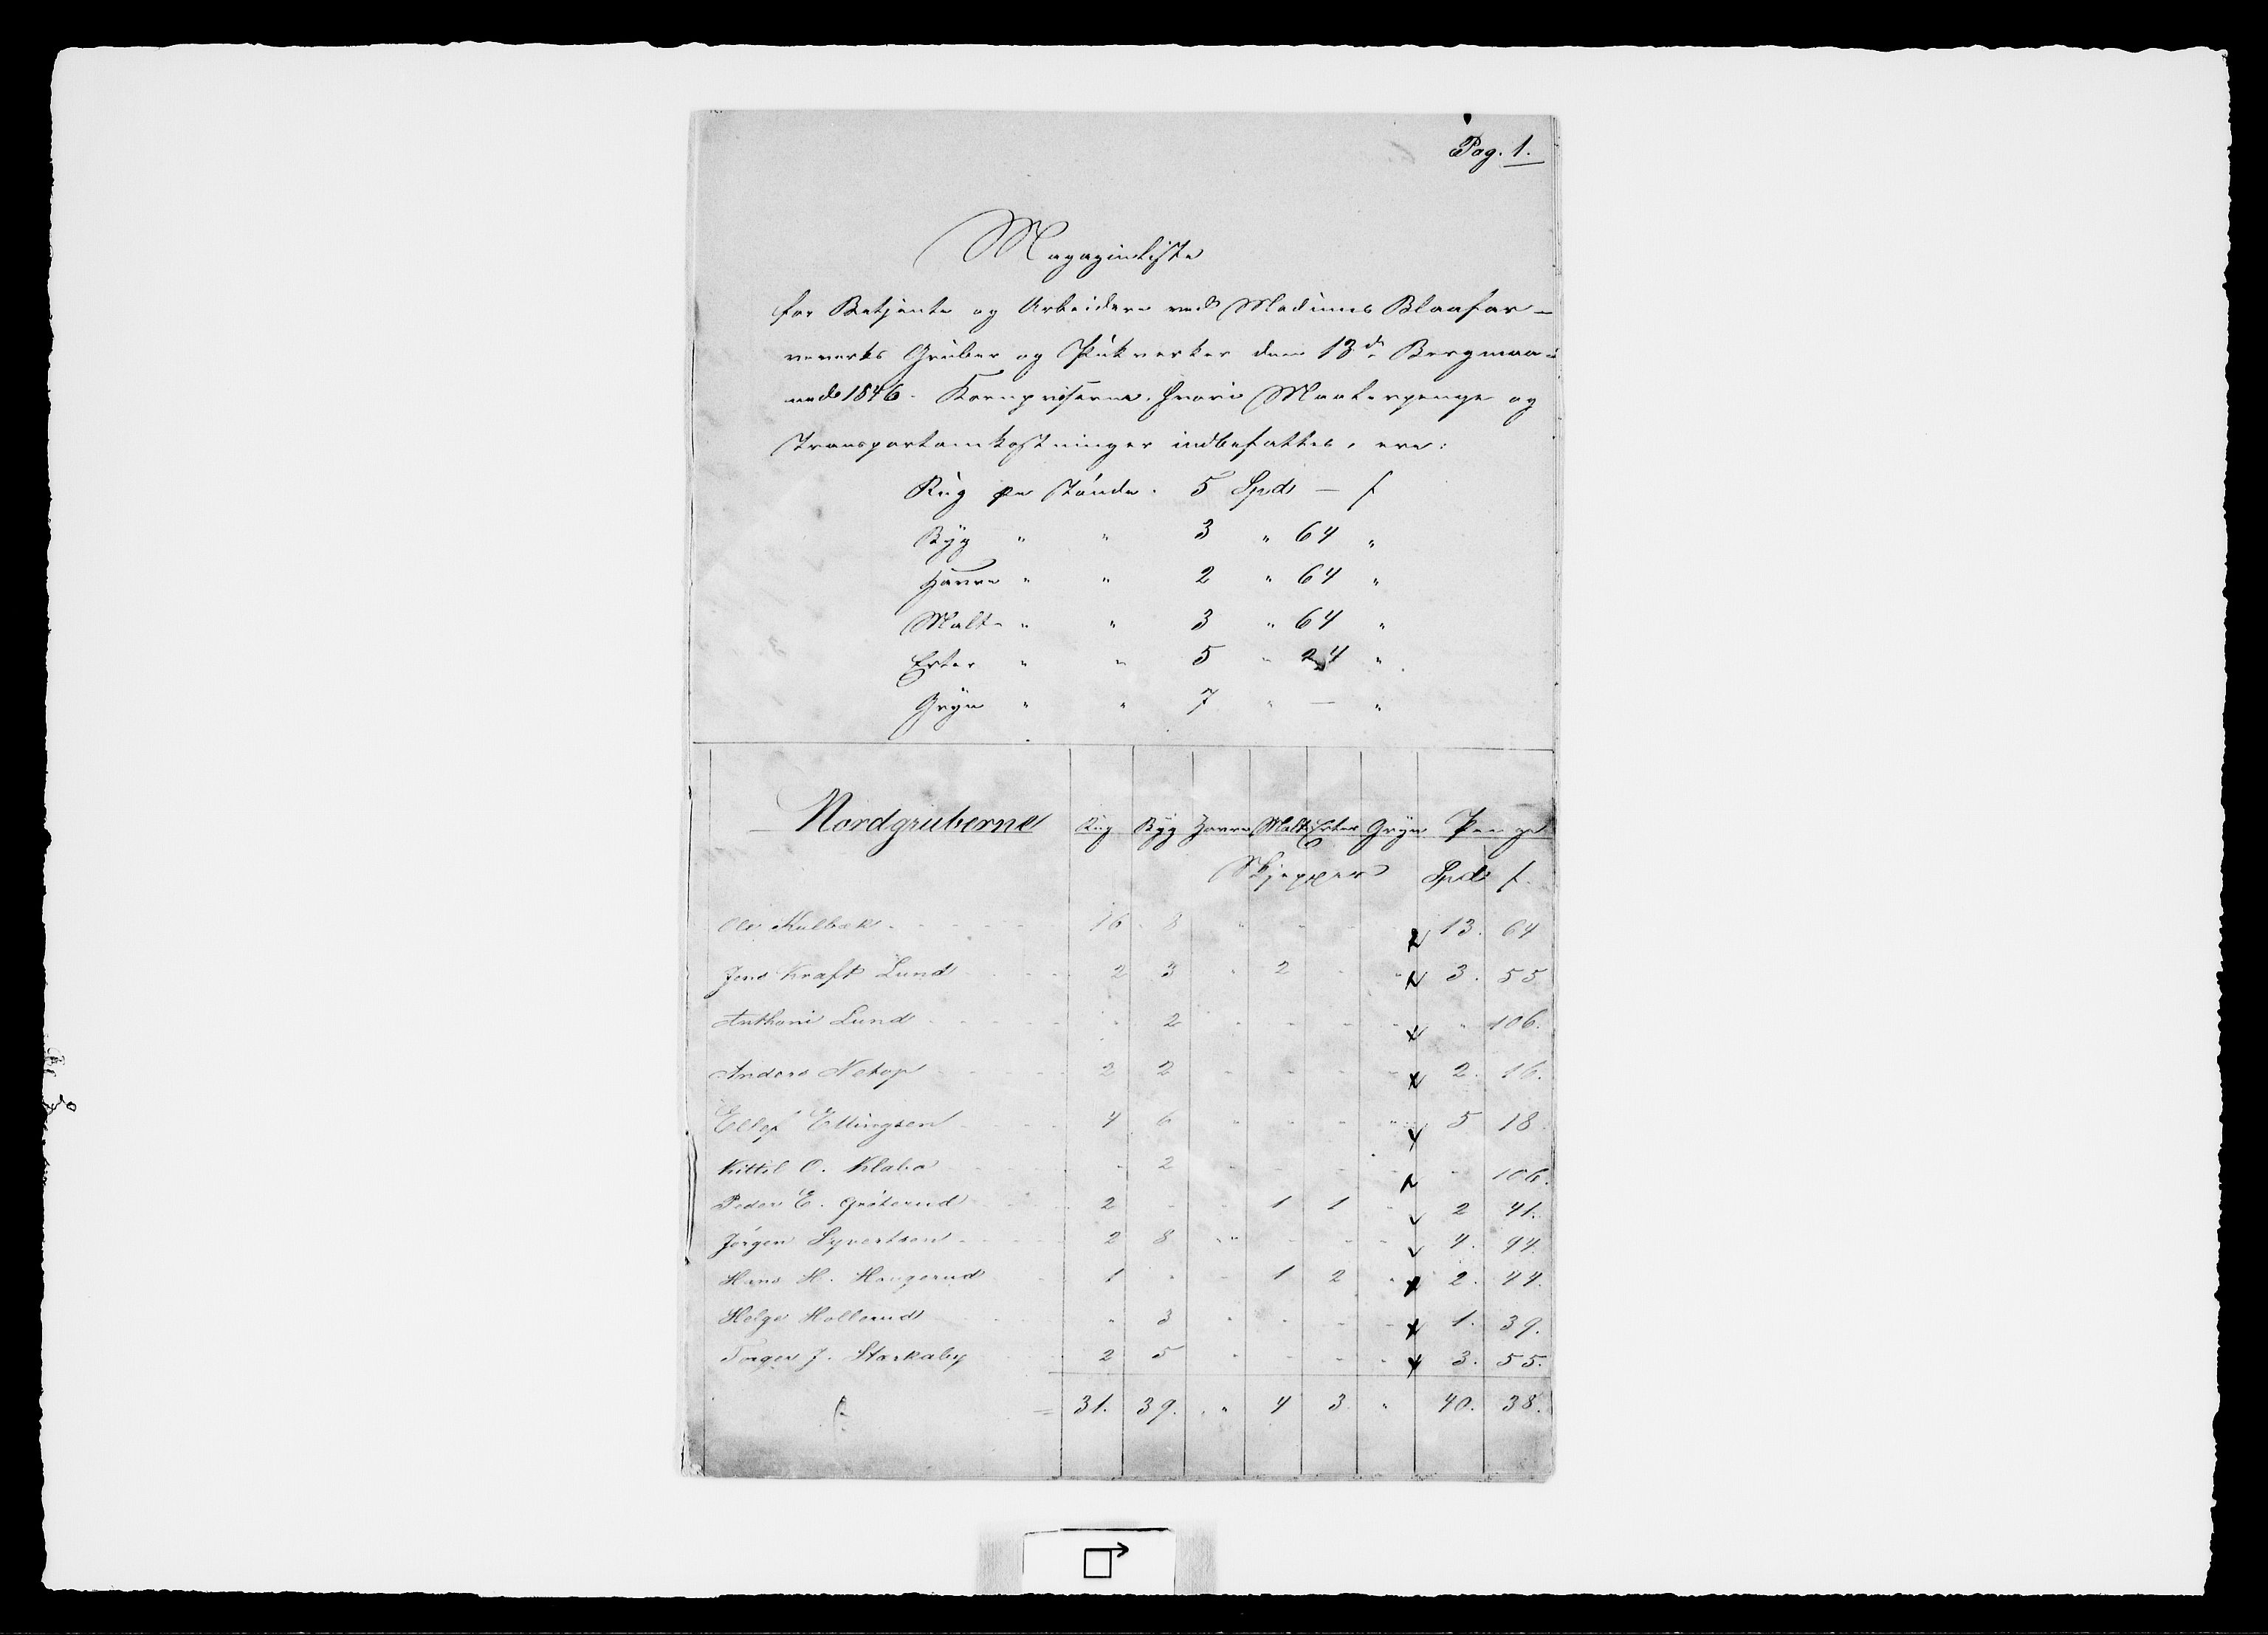 Pag. 1.
Magazinliste
for Betjente og Arbeidere ved Modums Blaafar-
veværks Gruber og Pukværker den 13de Bergmaa-
ned 1846. Kornpriserne, hvori Maalerpenge og
Transportomkostninger indbefattes, ere:
Rug pr Tønde. 5 Spd — ſ
Byg " " 3 " 64 "
Havre " " 2 " 64 "
Malt " " 3 " 64 "
Erter " " 5 " 24 "
Gryn " " 7 " — "
Nordgruberne Rug Byg Havre Malt Erter Gryn Penge
Skjepper Spd ſ.
Ole Kulbæk 16 8 " " 13. 64
Jens Kraft Lund 2 3 " 2 " " 3. 55
Anthoni Lund " 2 " " " " " 106.
Anders Netop 2 2 " " " " 2. 16.
Ellef Ellingsen 4 6 " " " " 5 18
Kittil O. Klaba " 2 " " " " " 106.
Peder E. Grøterud 2 " " 1 1 " 2 41.
Jørgen Syvertsen 2 8 " " " " 4. 94.
Hans H. Haugerud 1 " " 1 2 " 2. 44.
Helge Hollerud " 3 " " " " 1. 39.
Torger J. Stærkeby 2 5 " " " " 3. 55.
= 31. 39. " 4 3 " 40. 38.